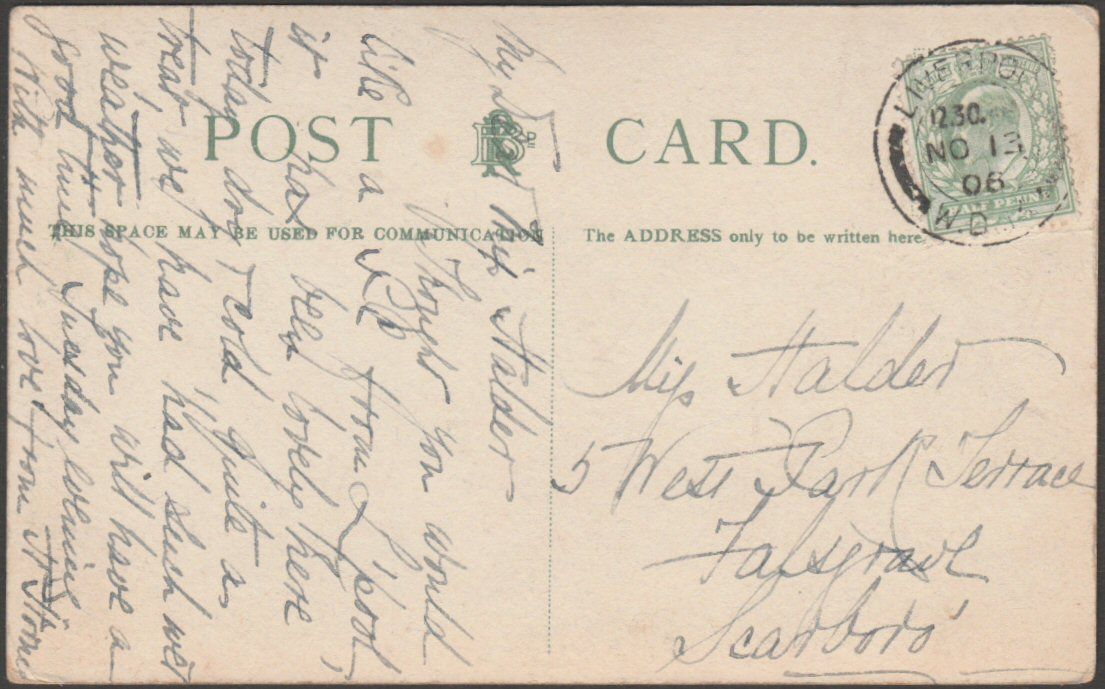 POST CARD.
THIS SPACE MAY BE USED FOR COMMUNICATION
The ADDRESS only to be written here.
LIVERPOOL
12.30.
NO 13
06
HALF PENNY
My Dear Miss Halder
Thought you would
like a PC from L'pool,
it has been lovely here
today dry & cold, quite a
treat, we have had such wet
weather, hope you will have a
good time Tuesday evening
With much love from
Miss Halder
5 West Park Terrace
Falsgrave
Scarboro'